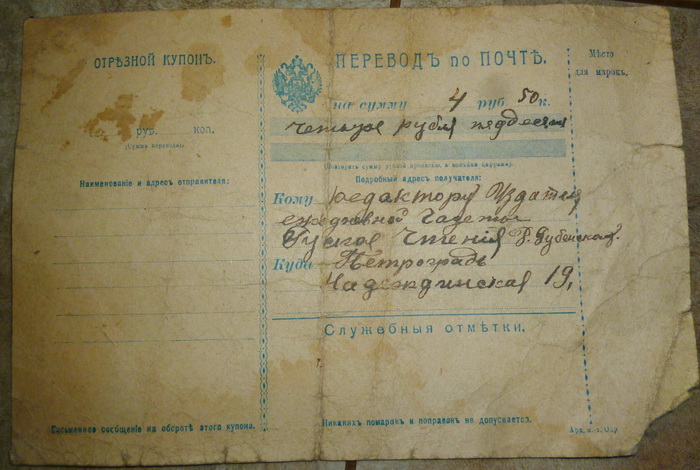 ОТРѢЗНОЙ КУПОНЪ.
руб. коп.
(Сумма перевода).
Наименованіе и адресъ отправителя:
Письменное сообщеніе на оборотѣ этого купона.
ПЕРЕВОДЪ по ПОЧТѢ.
на сумму 4 руб 50 к.
четыре рубля пяддесят
Подробный адресъ получателя:
Кому редактору Издател
ежедневной газеты
Чтенія
Куда Петроградъ
Надеждинская 19,
Служебныя отмѣтки.
Никакихъ помарокъ и поправокъ не допускается.
Мѣсто
для марокъ.